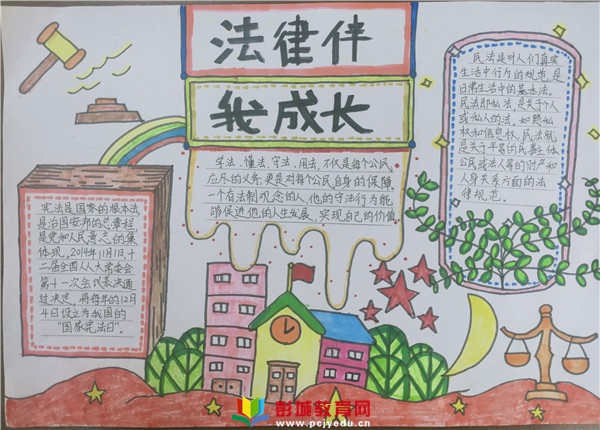 法律伴
我成长
学法、懂法、守法、用法,不仅是每个公民
应尽的义务,更是对每个公民自身的保障。
一个有法制观念的人,他的守法行为能
够促进他的人生发展,实现自己的价值。
宪法是国家的根本法,
是治国安邦的总章程,
是党和人民意志的集
体现,2014年11月1日十
二届全国人大常委会
第十一次会代表决通
过决定,将每年的12月
4日设立为我国的
“国家宪法日”。
民法是对人们真实
生活中行为的规范,是
日常生活中的基本法。
民法即私法,是关于个人
或私人的法。如隐私
权和信息权。民法就
是关于平等的民事主体
公民或法人等的财产和
人身关系方面的法
律规范。
彭城教育网
www.pcjyedu.cn